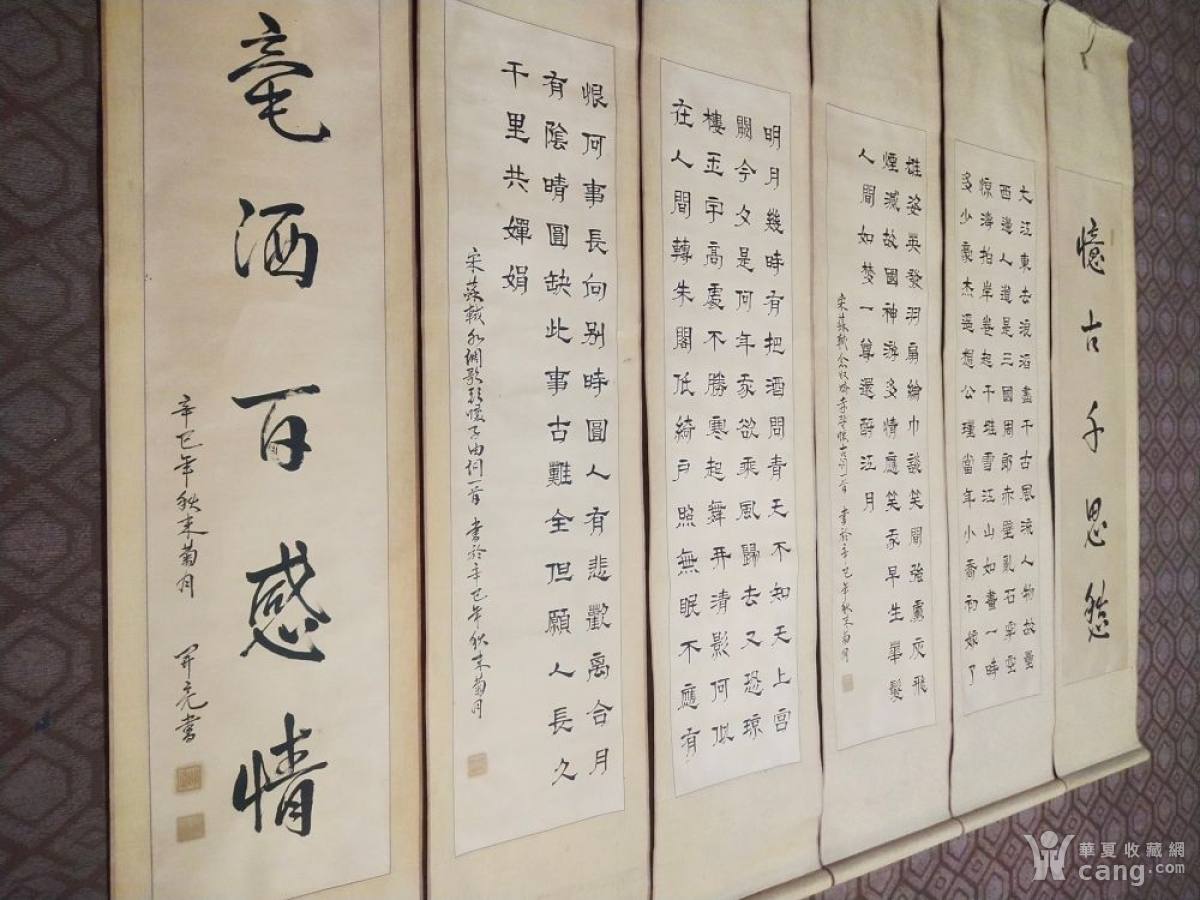 憶古千思愁
大江東去浪滔盡千古風流人物故壘
西邊人道是三國周郎赤壁亂石穿空
惊濤拍岸卷起千堆雪江山如畫一時
多少豪杰遥想公瑾當年小喬初嫁了
雄姿英發羽扇綸巾談笑間強虜灰飛
煙滅故國神游多情應笑我早生華髮
人間如梦一尊還酹江月
宋蘇軾念奴嬌赤壁懷古詞一首 書於辛巳年秋末菊月
明月幾時有把酒問青天不知天上宮
闕今夕是何年我欲乘風歸去又恐瓊
樓玉宇高處不勝寒起舞弄清影何似
在人間轉朱閣低綺戶照無眠不應有
恨何事長向别時圓人有悲歡離合月
有陰晴圓缺此事古難全但願人長久
千里共嬋娟
宋蘇軾水調歌頭懷子由詞一首 書於辛巳年秋末菊月
毫洒百感情
辛巳年秋末菊月 开亮書
華夏收藏網
cang.com